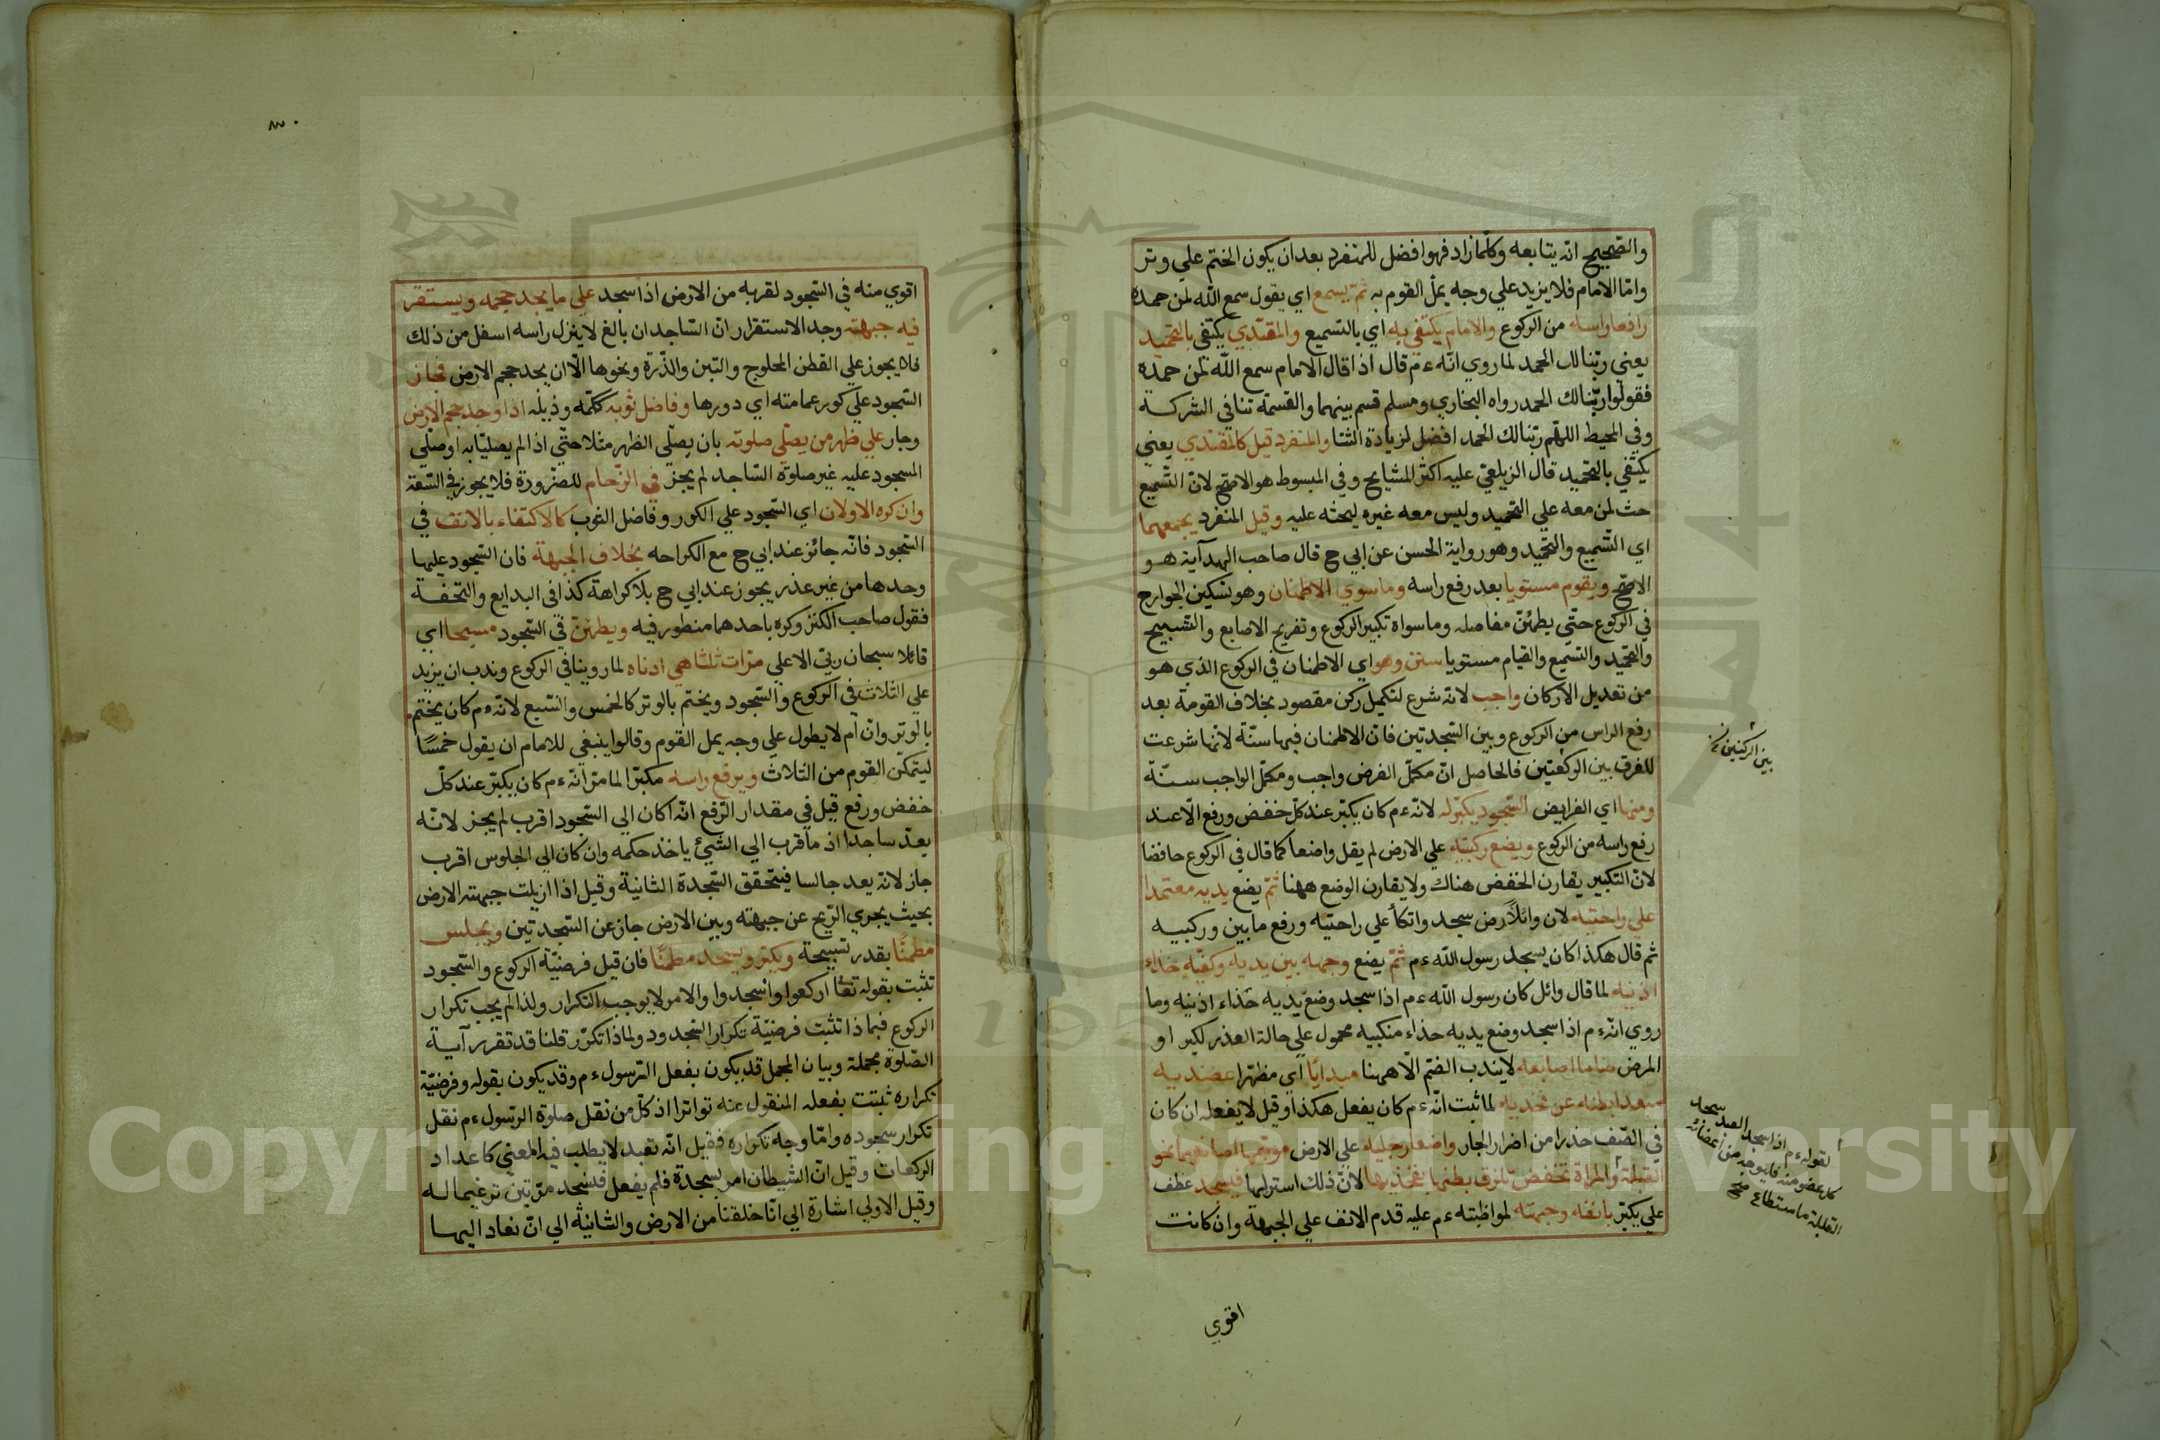 والصحيح انه يتابعه وكلما زاد فهو افضل للمنفرد بعد ان يكون الختم علي وتر
واما الامام فلا يزيد علي وجه يمل القوم به ثم يسمع اي يقول سمع الله لمن حمده
رافعا راسه من الركوع والامام يكتفي به اي بالتسميع والمقتدي يكتفي بالتحميد
يعني ربنا لك الحمد لما روي انه ءم قال اذا قال الامام سمع الله لمن حمده
فقولوا ربنا لك الحمد رواه البخاري ومسلم قسم بينهما والقسمة تنافي الشركة
وفي المحيط اللهم ربنا لك الحمد افضل لزيادة الثنا والمنفرد قيل كالمقتدي يعني
يكتفي بالتحميد قال الزيلعي عليه اكثر المشايخ وفي المبسوط هو الاصح لان التسميع
حث لمن معه علي التحميد وليس معه غيره ليحثه عليه وقيل المنفرد يجمعهما
اي التسميع والتحميد وهو رواية الحسن عن ابي ح قال صاحب الهدآية هو
الاصح ويقوم مستويا بعد رفع راسه وما سوي الاطمنان وهو تسكين الجوارح
في الركوع حتي يطمئن مفاصله وما سواه تكبير الركوع وتفريج الاصابع والتسبيح
والتحميد والتسميع والقيام مستويا سنن وهو اي الاطمنان في الركوع الذي هو
من تعديل الاركان واجب لانه شرع لتكميل ركن مقصود بخلاف القومة بعد
رفع الراس من الركوع وبين السجدتين فان الاطمنان فيها سنة لانها شرعت
للفرق بين الركعتين فالحاصل ان مكمل الفرض واجب ومكمل الواجب سنة
بين الركنين
ومنها اي الفرايض السجود يكبر له لانه ءم كان يكبر عند كل خفض ورفع الا عند
رفع راسه من الركوع ويضع ركبتيه علي الارض لم يقل واضعا كما قال في الركوع خافضا
لان التكبير يقارن الخفض هناك ولا يقارن الوضع ههنا ثم يضع يديه معتمدا
علي راحتيه لان وائلا رض سجد واتكأ علي راحتيه ورفع ما بين وركبيه
ثم قال هكذا كان يسجد رسول الله ءم ثم يضع وجهه بين يديه وكفيه حذاء
اذنيه لما قال وائل كان رسول الله ءم اذا سجد وضع يديه حذاء اذنيه وما
روي انه ءم اذا سجد وضع يديه حذاء منكبيه محمول علي حالة العذر لكبر او
المرض ضاما اصابعه لا يندب الضم الا ههنا مبدايا اي مظهرا عضديه
مبعدا بطنه عن فخذيه لما ثبت انه ءم كان يفعل هكذا وقيل لا يفعله ان كان
في الصف حذرا من اضرار الجار واضعا رجليه علي الارض موجها اصابعهما نحو
القبلة والمراة تخفض تلزق بطنها بفخذيها لان ذلك استر لها فيسجد عطف
علي يكبر بانفه وجبهته لمواظبته ءم عليه قدم الانف علي الجبهة وان كانت
لقوله ءم اذا سجد العبد سجد
كل عضو منه فليوجه من اعضائه
القبلة ما استطاع
اقوي
٣٠
اقوي منه في السجود لقربه من الارض اذا سجد علي ما يجد حجمه ويستقر
فيه جبهته وجد الاستقرار ان الساجد ان بالغ لا ينزل راسه اسفل من ذلك
فلا يجوز علي القطن المحلوج والتبن والذرة ونحوها الا ان يجد حجم الارض فجاز
السجود علي كور عمامته اي دورها وفاضل ثوبه ككمه وذيله اذا وجد حجم الارض
وجاز علي ظهر من يصلي صلوته بان يصلي الظهر مثلا حتي اذا لم يصليا به او صلي
المسجود عليه غير صلوة الساجد لم يجز في الزحام للضرورة فلا يجوز في السعة
وان كره الاولان اي السجود علي الكور وفاضل الثوب كالاكتفاء بالانف في
السجود فانه جائز عند ابي ح مع الكراحه بخلاف الجبهة فان السجود عليها
وحدها من غير عذر يجوز عند ابي ح بلا كراهة كذا في البدايع والتحفة
فقول صاحب الكنز وكره باحدهما منظور فيه ويطمئن في السجود مسبحا اي
قائلا سبحان ربي الاعلي مرات ثلثا هي ادناه لما روينا في الركوع وندب ان يزيد
علي الثلاث في الركوع والسجود ويختم بالوتر كالخمس والسبع لانه ءم كان يختم
بالوتر وان ام لا يطول علي وجه يمل القوم وقالوا ينبغي للامام ان يقول خمسا
ليتمكن القوم من الثلاث ويرفع راسه مكبرا لما مر انه ءم كان يكبر عند كل
خفض ورفع قيل في مقدار الرفع انه اكان الي السجود اقرب لم يجز لانه
يعد ساجدا اذ ما قرب الي الشيئ ياخذ حكمه وان كان الي الجلوس اقرب
جاز لانه يعد جالسا فيتحقق السجدة الثانية وقيل اذا ازيلت جبهته الارض
بحيث يجري الريح عن جبهته وبين الارض جاز عن السجدتين ويجلس
مطمئنا بقدر تسبيحة ويكبر ويسجد مطمئنا فان قيل فرضية الركوع والسجود
تثبت بقوله تعا اركعوا واسجدوا والامر لا يوجب التكرار ولذا لم يجب تكرار
الركوع فبماذا تثبت فرضية تكرار السجدود ولماذا تكرر قلنا قد تقرر آية
الصلوة مجملة وبيان المجمل قد يكون بفعل الرسول ءم وقد يكون بقوله وفرضية
تكراره ثبتت بفعله المنقول عنه تواترا اذ كل من نقل صلوة الرسول ءم نقل
تكرار سجوده واما وجه تكراره فقيل انه تعبد لا يطلب فيه المعني كاعداد
الركعات وقيل ان الشيطان امر بسجدة فلم يفعل فنسجد مرتين ترغيما له
وقيل الاولي اشارة الي انا خلقنا من الارض والثانية الي ان نعاد اليها